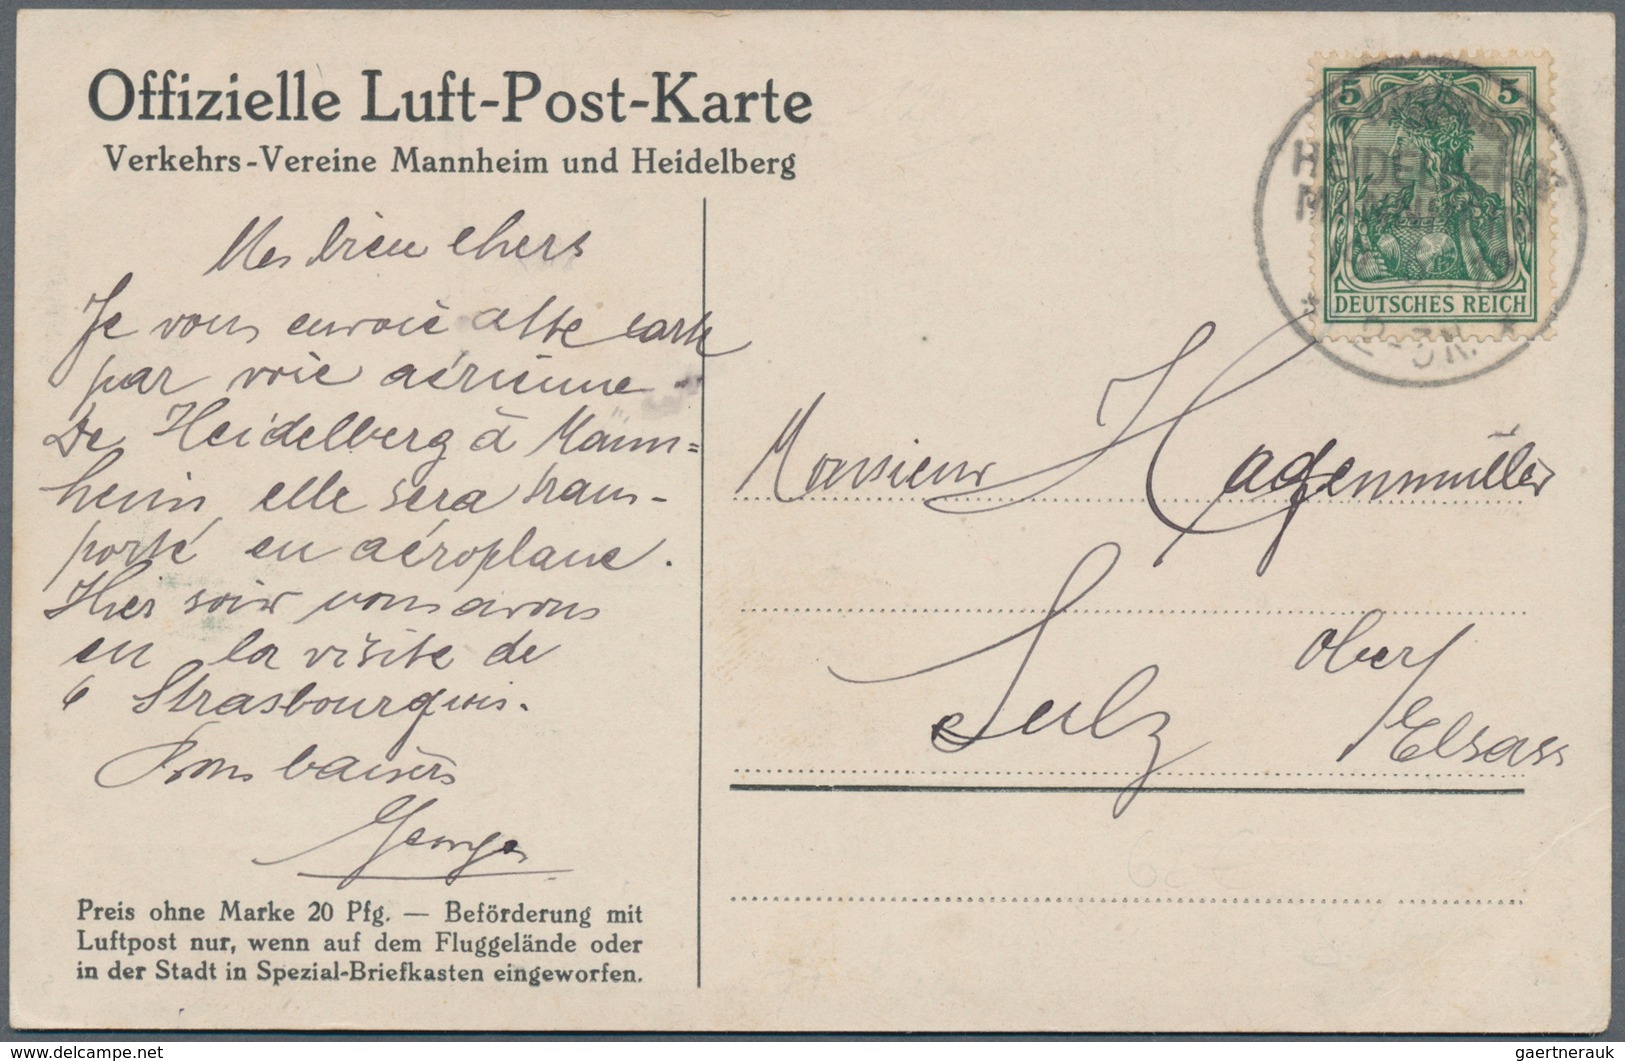 Offizielle Luft-Post-Karte
Verkehrs-Vereine Mannheim und Heidelberg
5 5
DEUTSCHES REICH
2-3N.
Mes bien chers
Je vous envoie cette carte
par voie aérienne
De Heidelberg à Mann=
heim, elle sera trans-
porté en aéroplane.
Hier soir nous avons
eu la visite de
6 Strasbourgeois.
Bons baisers
Georges
Monsieur Hagenmüller
Sulz Ober/
Elsass
Preis ohne Marke 20 Pfg. — Beförderung mit
Luftpost nur, wenn auf dem Fluggelände oder
in der Stadt in Spezial-Briefkasten eingeworfen.
www.delcampe.net
gaertnerauk